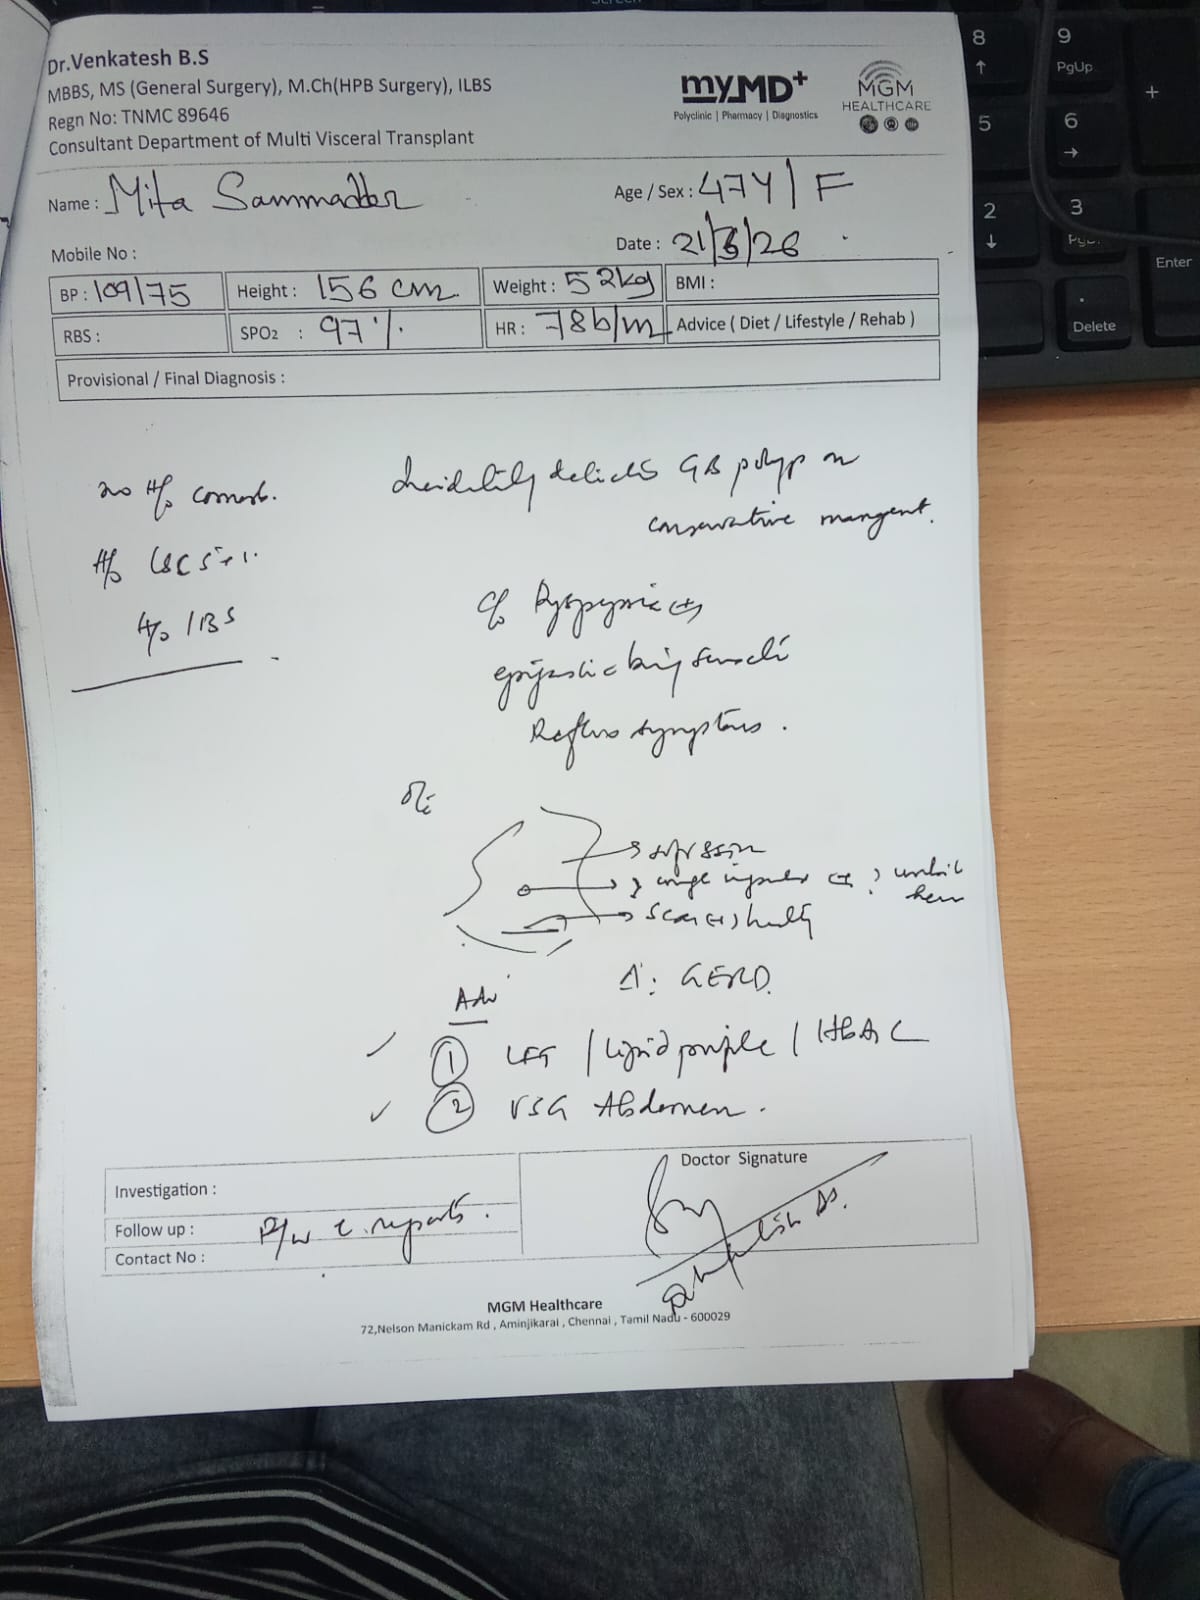 Dr.Venkatesh B.S
MBBS, MS (General Surgery), M.Ch(HPB Surgery), ILBS
Regn No: TNMC 89646
Consultant Department of Multi Visceral Transplant
myMD+
Polyclinic | Pharmacy | Diagnostics
MGM
HEALTHCARE
Name : Mita
Age / Sex : 47Y | F
Mobile No :
Date : 21/ /26
BP : 109/75 Height : 156 cm Weight : 52kg BMI :
RBS : SPO2 : 97% HR : 78b/m Advice ( Diet / Lifestyle / Rehab )
Provisional / Final Diagnosis :
no H/o comorb. GB polyp on
conservative
H/o LSCS
H/o IBS
c/o (+)
Reflux symptoms.
O/E
soft
scar (+) healthy
Δ: GERD.
Adv
① LFT / lipid profile / HbA1C
② USG Abdomen.
Doctor Signature
Investigation :
Follow up : R/w c. reports.
Contact No :
MGM Healthcare
72,Nelson Manickam Rd , Aminjikarai , Chennai , Tamil Nadu - 600029
8
9
PgUp
+
5
6
2
3
Enter
.
Delete